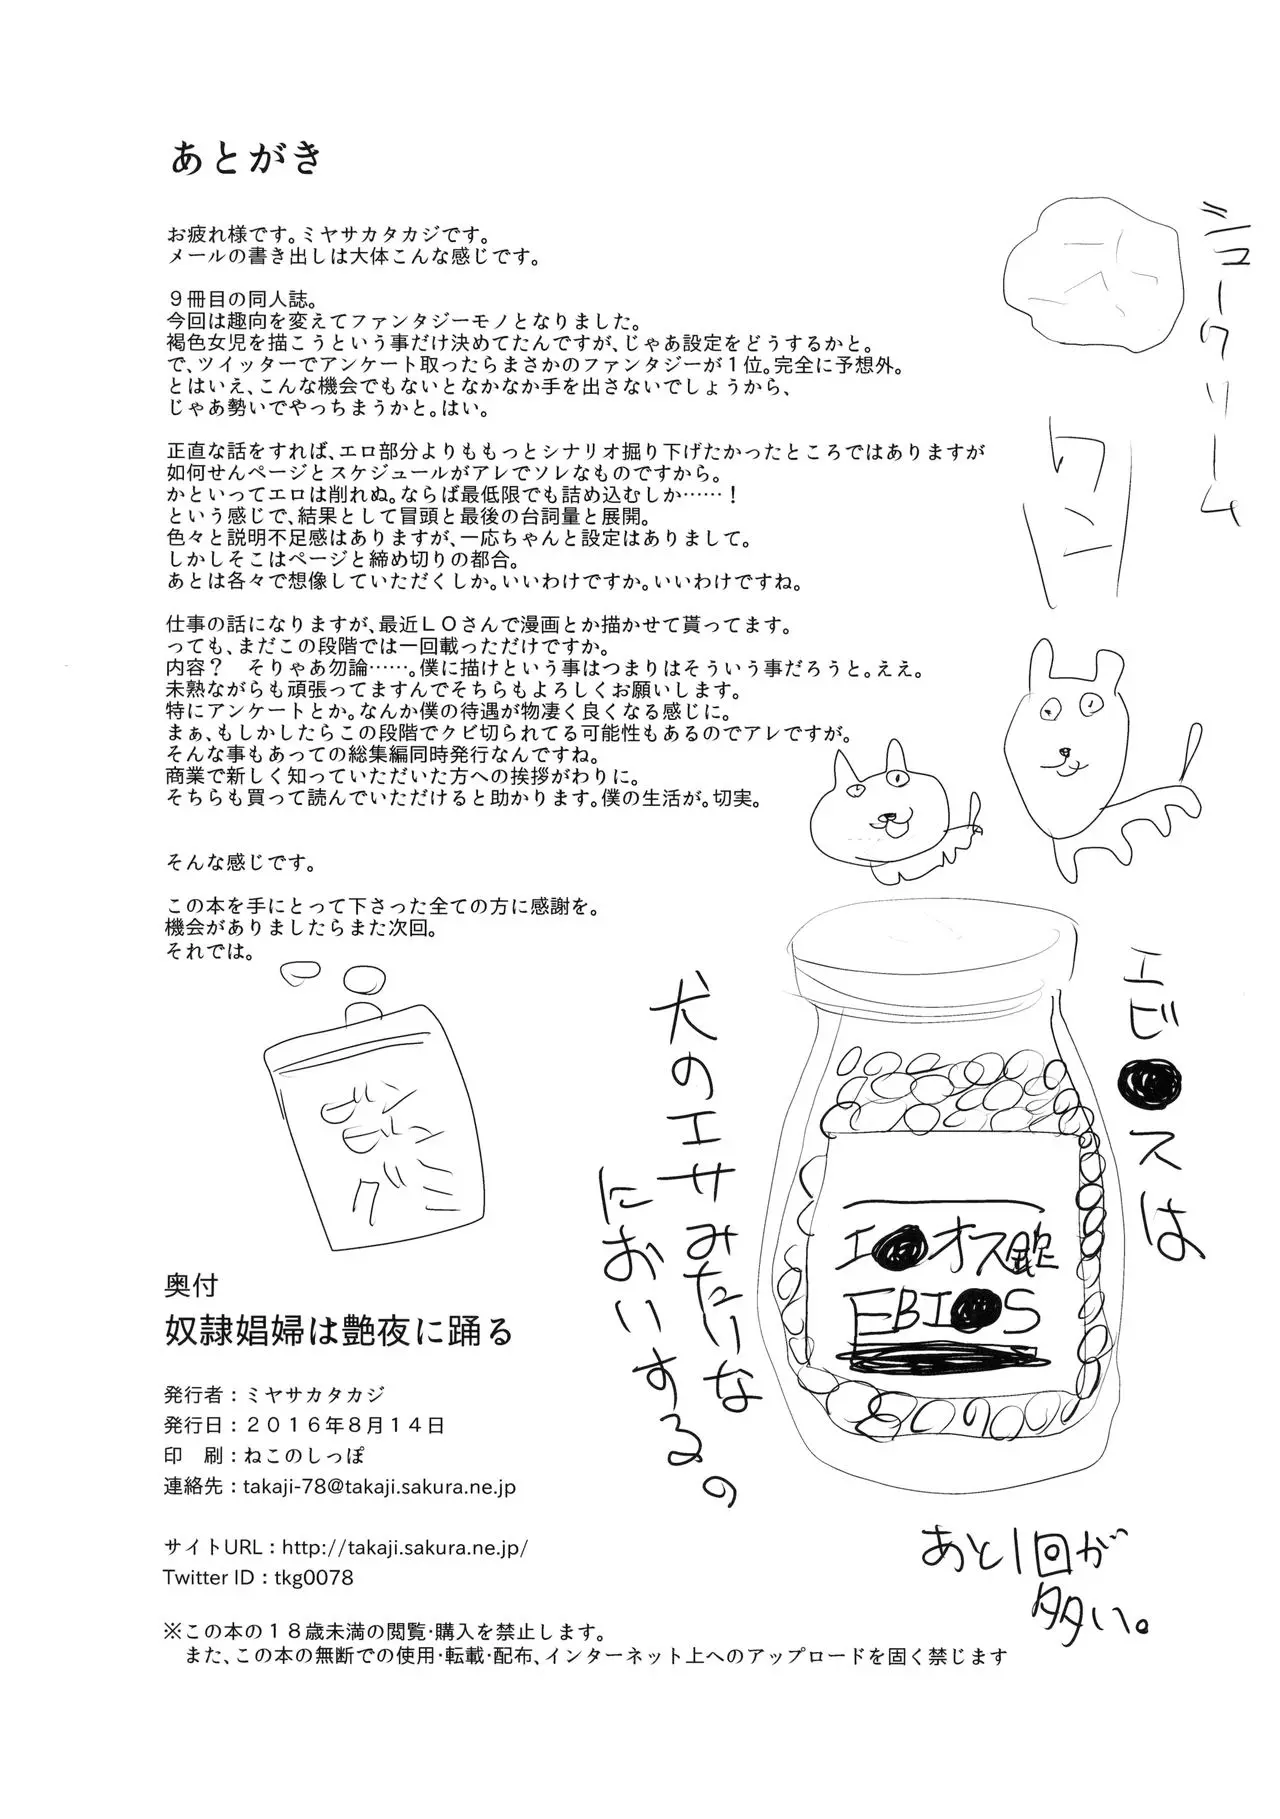 あとがき
お疲れ様です。ミヤサカタカジです。
メールの書き出しは大体こんな感じです。
９冊目の同人誌。
今回は趣向を変えてファンタジーモノとなりました。
褐色女児を描こうという事だけ決めてたんですが、じゃあ設定をどうするかと。
で、ツイッターでアンケート取ったらまさかのファンタジーが１位。完全に予想外。
とはいえ、こんな機会でもないとなかなか手を出さないでしょうから、
じゃあ勢いでやっちまうかと。はい。
正直な話をすれば、エロ部分よりももっとシナリオ掘り下げたかったところではありますが
如何せんページとスケジュールがアレでソレなものですから。
かといってエロは削れぬ。ならば最低限でも詰め込むしか……！
という感じで、結果として冒頭と最後の台詞量と展開。
色々と説明不足感はありますが、一応ちゃんと設定はありまして。
しかしそこはページと締め切りの都合。
あとは各々で想像していただくしか。いいわけですか。いいわけですね。
仕事の話になりますが、最近ＬＯさんで漫画とか描かせて貰ってます。
っても、まだこの段階では一回載っただけですか。
内容？　そりゃあ勿論……。僕に描けという事はつまりはそういう事だろうと。ええ。
未熟ながらも頑張ってますんでそちらもよろしくお願いします。
特にアンケートとか。なんか僕の待遇が物凄く良くなる感じに。
まぁ、もしかしたらこの段階でクビ切られてる可能性もあるのでアレですが。
そんな事もあっての総集編同時発行なんですね。
商業で新しく知っていただいた方への挨拶がわりに。
そちらも買って読んでいただけると助かります。僕の生活が。切実。
そんな感じです。
この本を手にとって下さった全ての方に感謝を。
機会がありましたらまた次回。
それでは。
シュークリーム
ワン
グミ
エビ●スは
犬のエサみたいな
においするの
エ●オス錠
EBI●S
あと1回が
多い。
奥付
奴隷娼婦は艶夜に踊る
発行者：ミヤサカタカジ
発行日：２０１６年８月１４日
印　刷：ねこのしっぽ
連絡先：takaji-78@takaji.sakura.ne.jp
サイトURL：http://takaji.sakura.ne.jp/
Twitter ID：tkg0078
※この本の１８歳未満の閲覧・購入を禁止します。
また、この本の無断での使用・転載・配布、インターネット上へのアップロードを固く禁じます